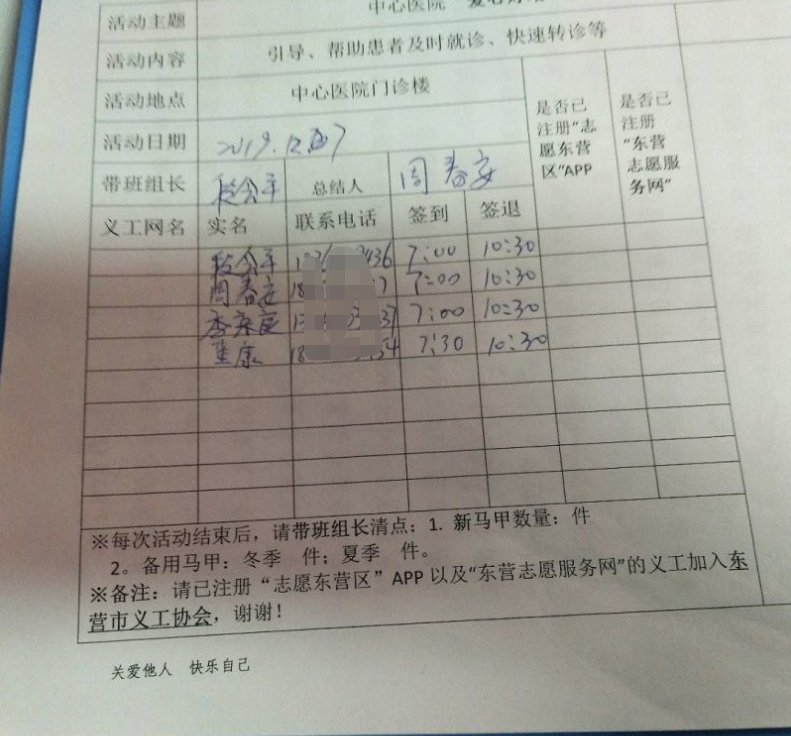 活动主题 中心医院
活动内容 引导、帮助患者及时就诊、快速转诊等
活动地点 中心医院门诊楼
活动日期 2019.12.
带班组长 段会平 总结人 周春安
是否已注册“志愿东营区”APP
是否已注册“东营志愿服务网”
义工网名 实名 联系电话 签到 签退
段会平 7:00 10:30
周春安 7:00 10:30
7:00 10:30
董康 7:30 10:30
※每次活动结束后，请带班组长清点：1. 新马甲数量： 件
2。备用马甲：冬季 件；夏季 件。
※备注：请已注册“志愿东营区”APP 以及“东营志愿服务网”的义工加入东
营市义工协会，谢谢！
关爱他人 快乐自己